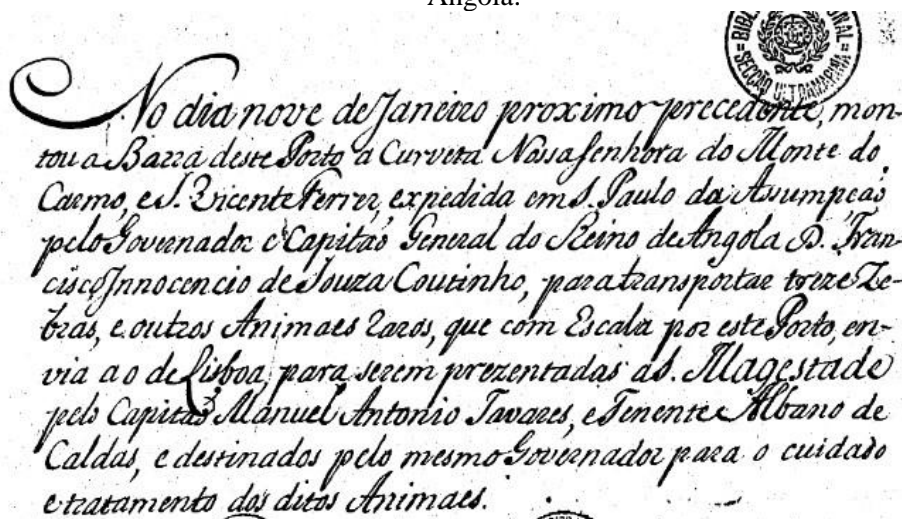 Angola.
BIBLIOTECA NACIONAL
= SECÇÃO ULTRAMARINA =
No dia nove de Janeiro proximo precedente, mon-
tou a Barra deste Porto a Curveta Nossa senhora do Monte do
Carmo, e S. Vicente Ferrer, expedida em S. Paulo da Assumpçaõ
pelo Governador e Capitaõ General do Reino de Angola D. Fran-
cisco Innocencio de Souza Coutinho, para transportar treze Ze-
bras, e outros Animaes raros, que com Escala por este Porto, en-
via ao de Lisboa, para serem prezentadas a S. Magestade
pelo Capitaõ Manuel Antonio Tavares, e Tenente Albano de
Caldas, e destinados pelo mesmo Governador para o cuidado
e tratamento dos ditos Animaes.